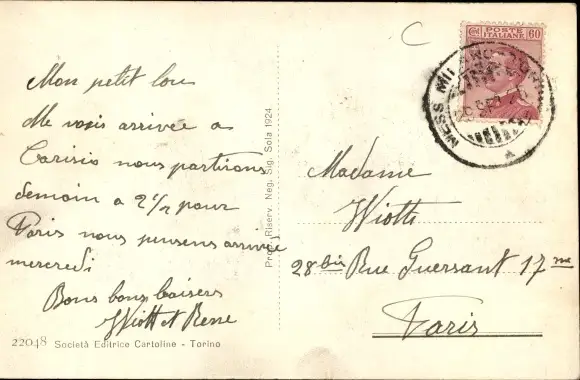 Mon petit lou
Me voisi arrivée a
Carisio nous partirons
demain a 2 1/2 pour
Paris nous pensons arrivée
mercredi
Bons bons baisers
Wiott et Rene
22048 Società Editrice Cartoline - Torino
Prop. Riserv. Neg. Sig. Sola 1924
C
POSTE ITALIANE 60
MESS. MILANO
Madame
Wiott
28 bis Rue Guersant 17me
Paris